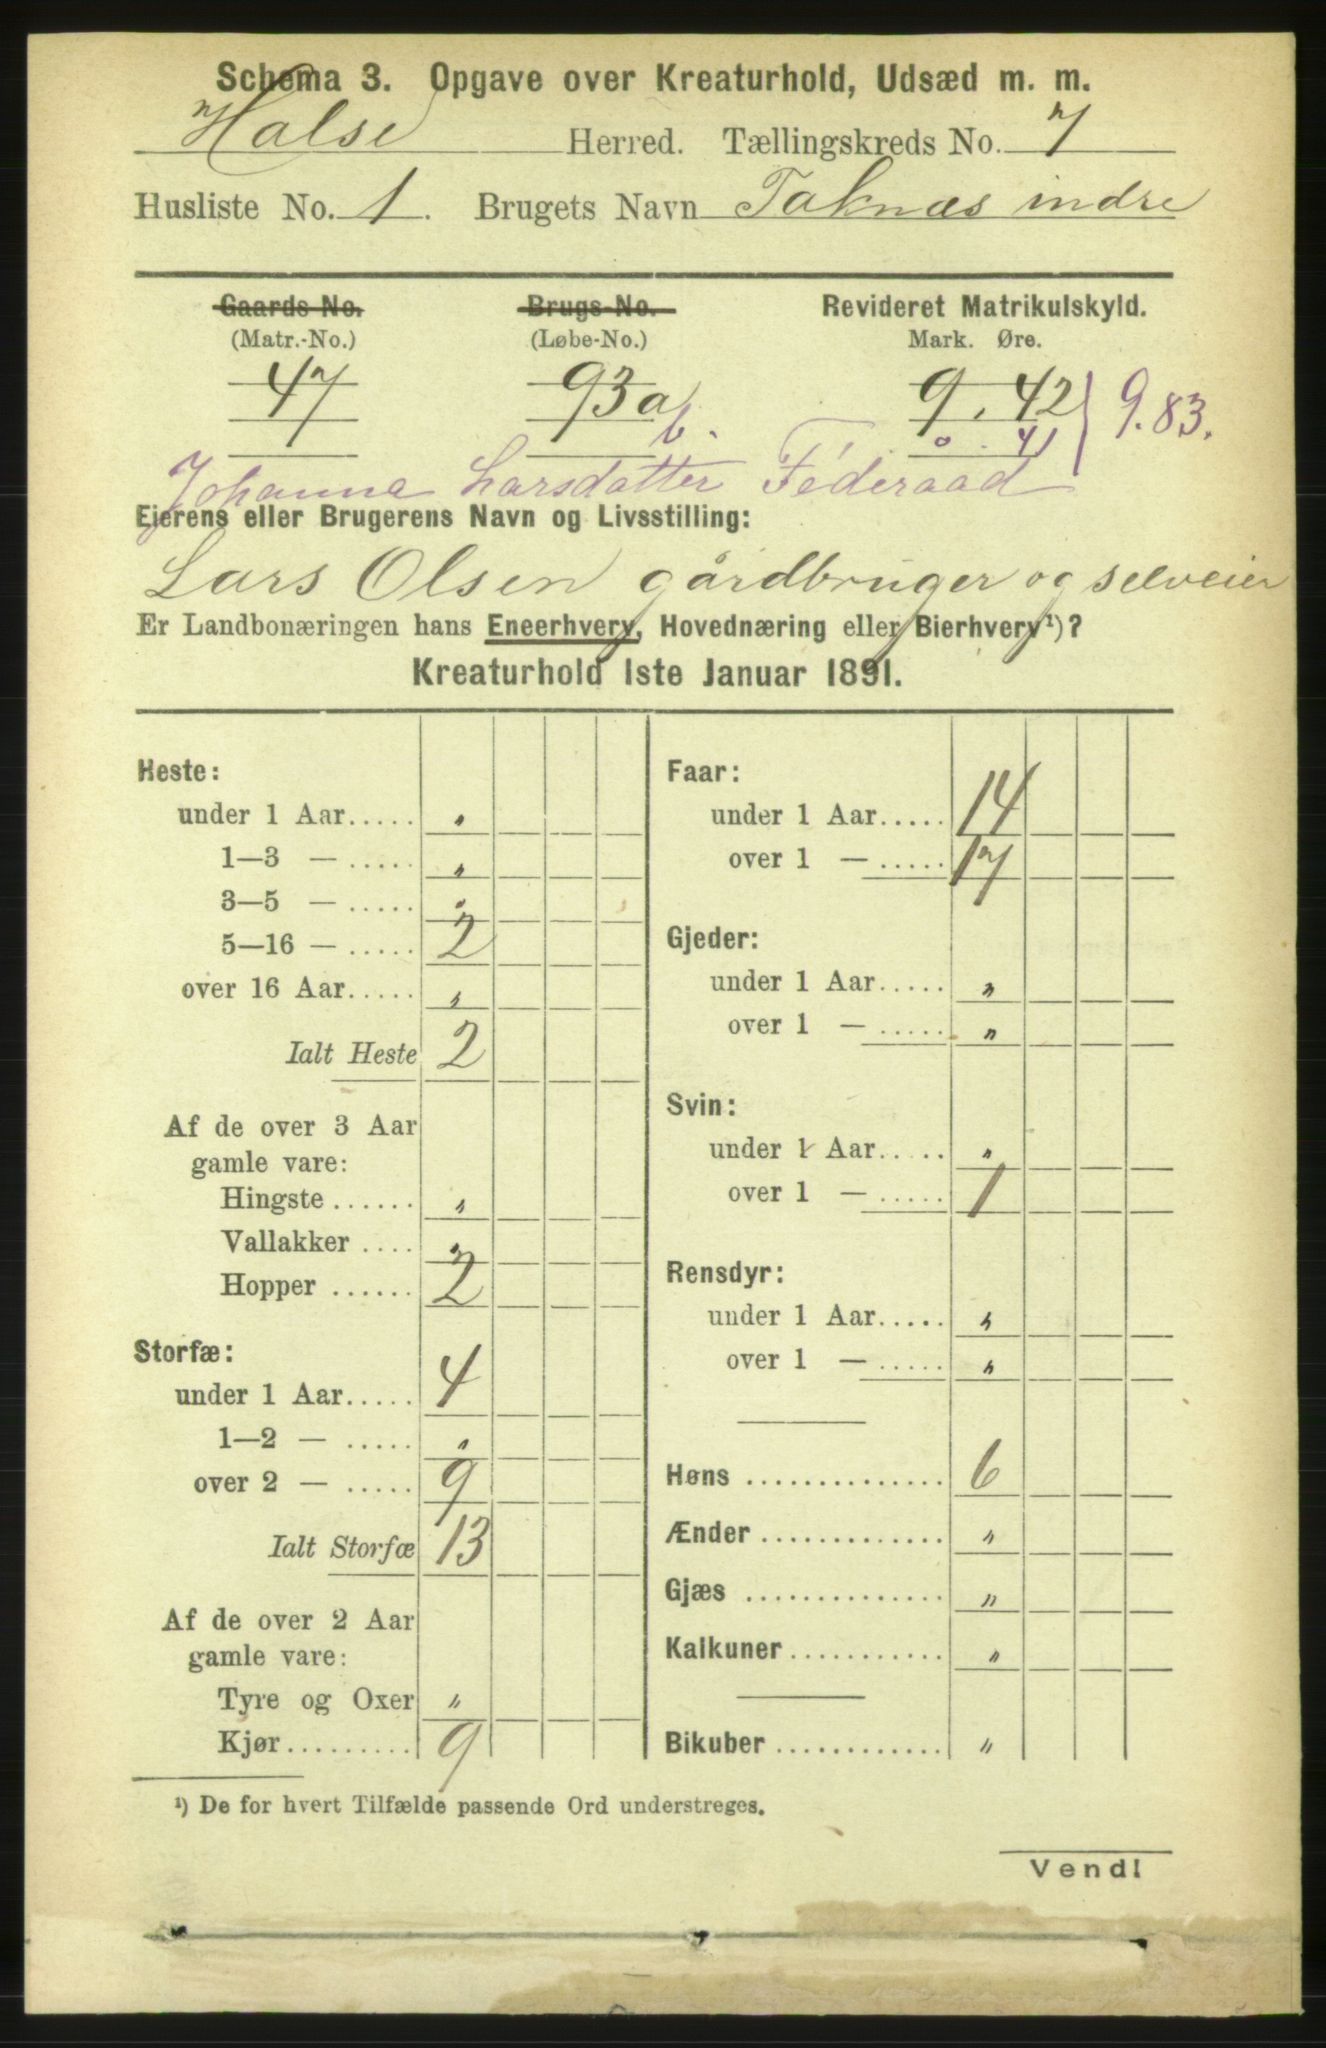 Schema 3. Opgave over Kreaturhold, Udsæd m. m.
Halse Herred. Tællingskreds No. 7
Husliste No. 1. Brugets Navn Taknæs indre
Gaards-No. Brugs-No. Revideret Matrikulskyld.
(Matr.-No.) (Løbe-No.) Mark. Øre.
47 93a 9.42 } 9.83.
b. 0.41
Johanna Larsdatter Føderaad
Eierens eller Brugerens Navn og Livsstilling:
Lars Olsen gårdbruger og selveier
Er Landbonæringen hans Eneerhverv, Hovednæring eller Bierhverv¹)?
Kreaturhold 1ste Januar 1891.
Heste:
under 1 Aar..... "
1—3 — ..... "
3—5 — ..... "
5—16 — ..... 2
over 16 Aar..... "
Ialt Heste 2
Af de over 3 Aar
gamle vare:
Hingste ...... "
Vallakker .... "
Hopper ...... 2
Storfæ:
under 1 Aar..... 4
1—2 — ..... "
over 2 — ..... 9
Ialt Storfæ 13
Af de over 2 Aar
gamle vare:
Tyre og Oxer "
Kjør......... 9
Faar:
under 1 Aar..... 14
over 1 — ..... 17
Gjeder:
under 1 Aar..... "
over 1 — ..... "
Svin:
under 1 Aar..... "
over 1 — ..... 1
Rensdyr:
under 1 Aar..... "
over 1 — ..... "
Høns .............. 6
Ænder ............. "
Gjæs .............. "
Kalkuner ........... "
Bikuber ............ "
¹) De for hvert Tilfælde passende Ord understreges.
Vend!